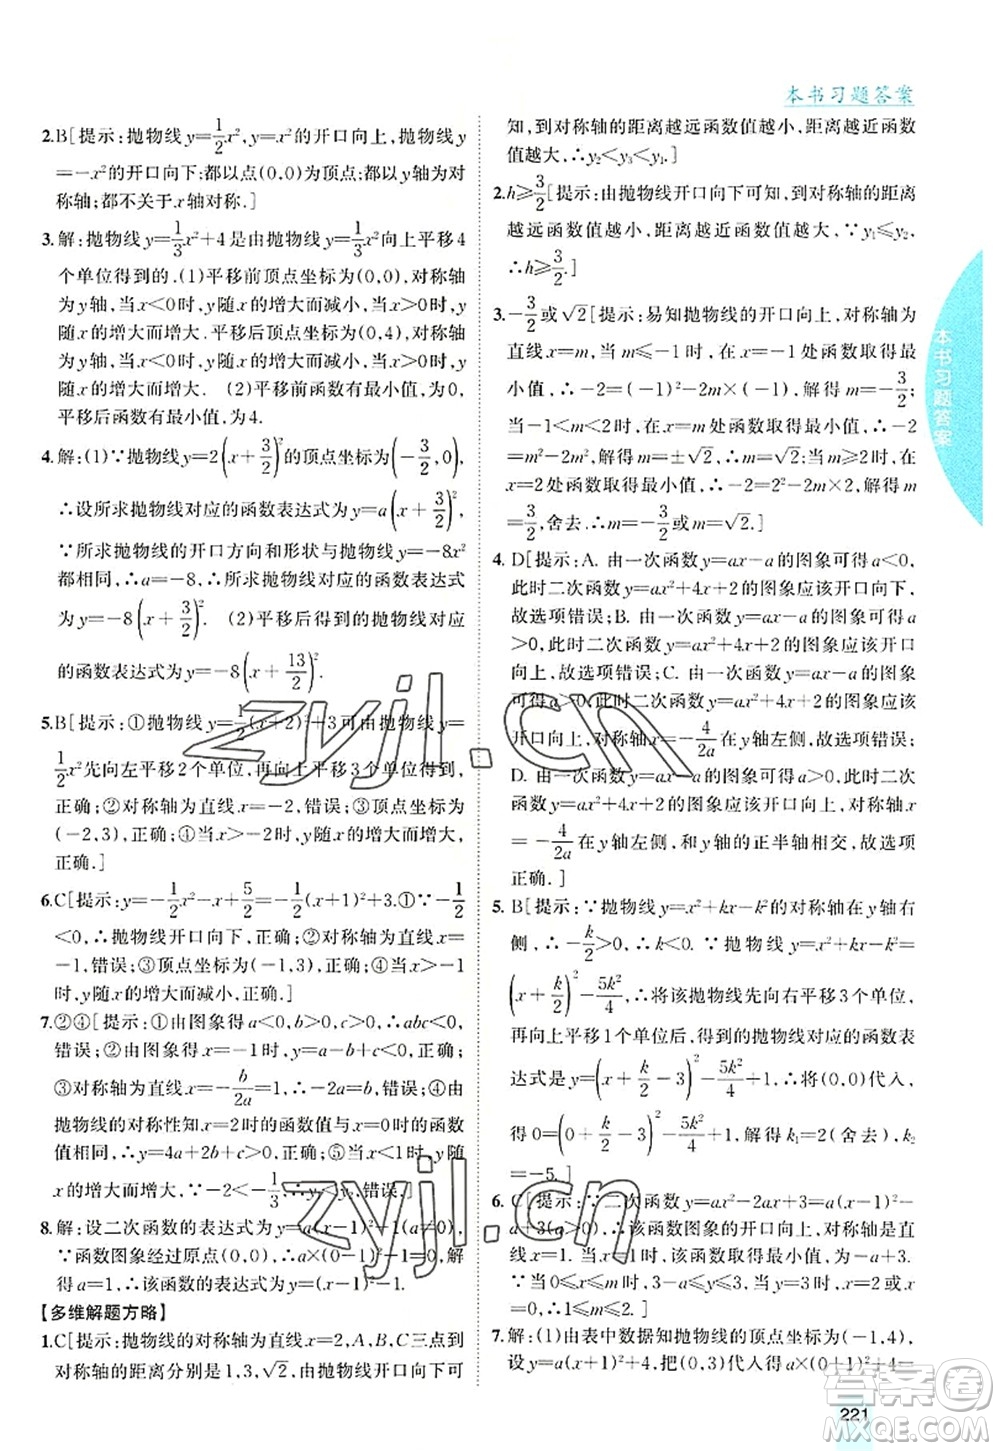 本书习题答案
2.B[提示:抛物线y=1/2x²,y=x²的开口向上,抛物线y
=-x²的开口向下;都以点(0,0)为顶点;都以y轴为对
称轴;都不关于x轴对称.]
3.解:抛物线y=1/3x²+4是由抛物线y=1/3x²向上平移4
个单位得到的.(1)平移前顶点坐标为(0,0),对称轴
为y轴,当x<0时,y随x的增大而减小,当x>0时,y随
x的增大而增大.平移后顶点坐标为(0,4),对称轴为
y轴,当x<0时,y随x的增大而减小,当x>0时,y随x
的增大而增大. (2)平移前函数有最小值,为0,
平移后函数有最小值,为4.
4.解:(1)∵抛物线y=2(x+3/2)²的顶点坐标为(-3/2,0),
∴设所求抛物线对应的函数表达式为y=a(x+3/2)².
∵所求抛物线的开口方向和形状与抛物线y=-8x²
都相同,∴a=-8,∴所求抛物线对应的函数表达式
为y=-8(x+3/2)². (2)平移后的抛物线对应
的函数表达式为y=-8(x+13/2)².
5.B[提示:①抛物线y=1/2(x+2)²+3可由抛物线y=
1/2x²先向左平移2个单位,再向上平移3个单位得到,
正确;②对称轴为直线x=-2,错误;③顶点坐标为
(-2,3),正确;④当x>-2时,y随x的增大而增大,
正确.]
6.C[提示:y=-1/2x²-x+5/2=-1/2(x+1)²+3.①∵-1/2
<0,∴抛物线开口向下,正确;②对称轴为直线x=
-1,错误;③顶点坐标为(-1,3),正确;④当x>-1
时,y随x的增大而减小,正确.]
7.②④[提示:①由图象得a<0,b>0,c>0,∴abc<0,
错误;②由图象得x=1时,y>0,∴a+b+c>0,正确;
③对称轴为直线x=-b/2a=1,∴2a+b=0,错误;④由
抛物线的对称性知x=2时的函数值与x=0时的函数
值相同,∴y=4a+2b+c>0,正确;⑤∵当x<1时,y随
x的增大而增大,-2<-1/3,∴y₁<y₂,错误.]
8.解:设二次函数的表达式为y=a(x-1)²-1(a≠0).
∵函数图象经过原点(0,0),∴a×(0-1)²-1=0,解
得a=1,∴该函数的表达式为y=(x-1)²-1.
【多维解题方略】
1.C[提示:抛物线的对称轴为直线x=2,A,B,C三点到
对称轴的距离分别是1,3,√2.由抛物线开口向下可
知,到对称轴的距离越远函数值越小,距离越近函数
值越大,∴y₂<y₃<y₁.]
2.h≥3/2[提示:由抛物线开口向下可知,到对称轴的距离
越远函数值越小,距离越近函数值越大,∵y₁≤y₂,
∴h≥3/2.]
3.-3/2或√2[提示:易知抛物线的开口向上,对称轴为
直线x=m,当m≤-1时,在x=-1处函数取得最
小值,∴-2=(-1)²-2m×(-1),解得m=-3/2;当
-1<m<2时,在x=m处函数取得最小值,∴-2
=m²-2m²-2m²,解得m=±√2(负值舍去);当m≥2时,
在x=2处函数取得最小值,∴-2=2²-2m×2,解得m
=3/2,舍去.∴m=-3/2或m=√2.]
4.D[提示:A. 由一次函数y=ax-a的图象可得a<0,
此时二次函数y=ax²+4x+2的图象应该开口向下,
故选项错误;B. 由一次函数y=ax-a的图象可得a
>0,此时二次函数y=ax²+4x+2的图象应该开口
向上,故选项错误;C. 由一次函数y=ax-a的图象
可得a>0,此时二次函数y=ax²+4x+2的图象应该
开口向上,对称轴x=-4/2a在y轴左侧,故选项错误;
D. 由一次函数y=ax-a的图象可得a>0,此时二次
函数y=ax²+4x+2的图象应该开口向上,对称轴x
=-4/2a在y轴左侧,与y轴的正半轴相交,故选项
正确.]
5.B[提示:∵抛物线y=x²+kx-k²的对称轴在y轴右
侧,∴-k/2>0,∴k<0.∵抛物线y=x²+kx-k²=
(x+k/2)²-5k²/4,∴将该抛物线先向右平移3个单位,
再向上平移1个单位后,得到的抛物线对应的函数表
达式为y=(x+k/2-3)²-5k²/4+1,∴将(0,0)代入,
得0=(0+k/2-3)²-5k²/4+1,解得k₁=2(舍去),k₂
=-5.]
6.C[提示:∵二次函数y=ax²-2ax+3=a(x-1)²-
a+3(a>0),∴该函数图象的开口向上,对称轴是直
线x=1.∴当x=1时,该函数取得最小值,为-a+3.
∵当0≤x≤3时,
7.解:(1)由表中数据知抛物线的顶点坐标为(-1,4),
设y=a(x+1)²+4(a≠0),把(0,3)代入得a(0+1)²+4=
221
zyjl.cn
zyjl.cn
本书习题答案
答案圈
MXQE.COM